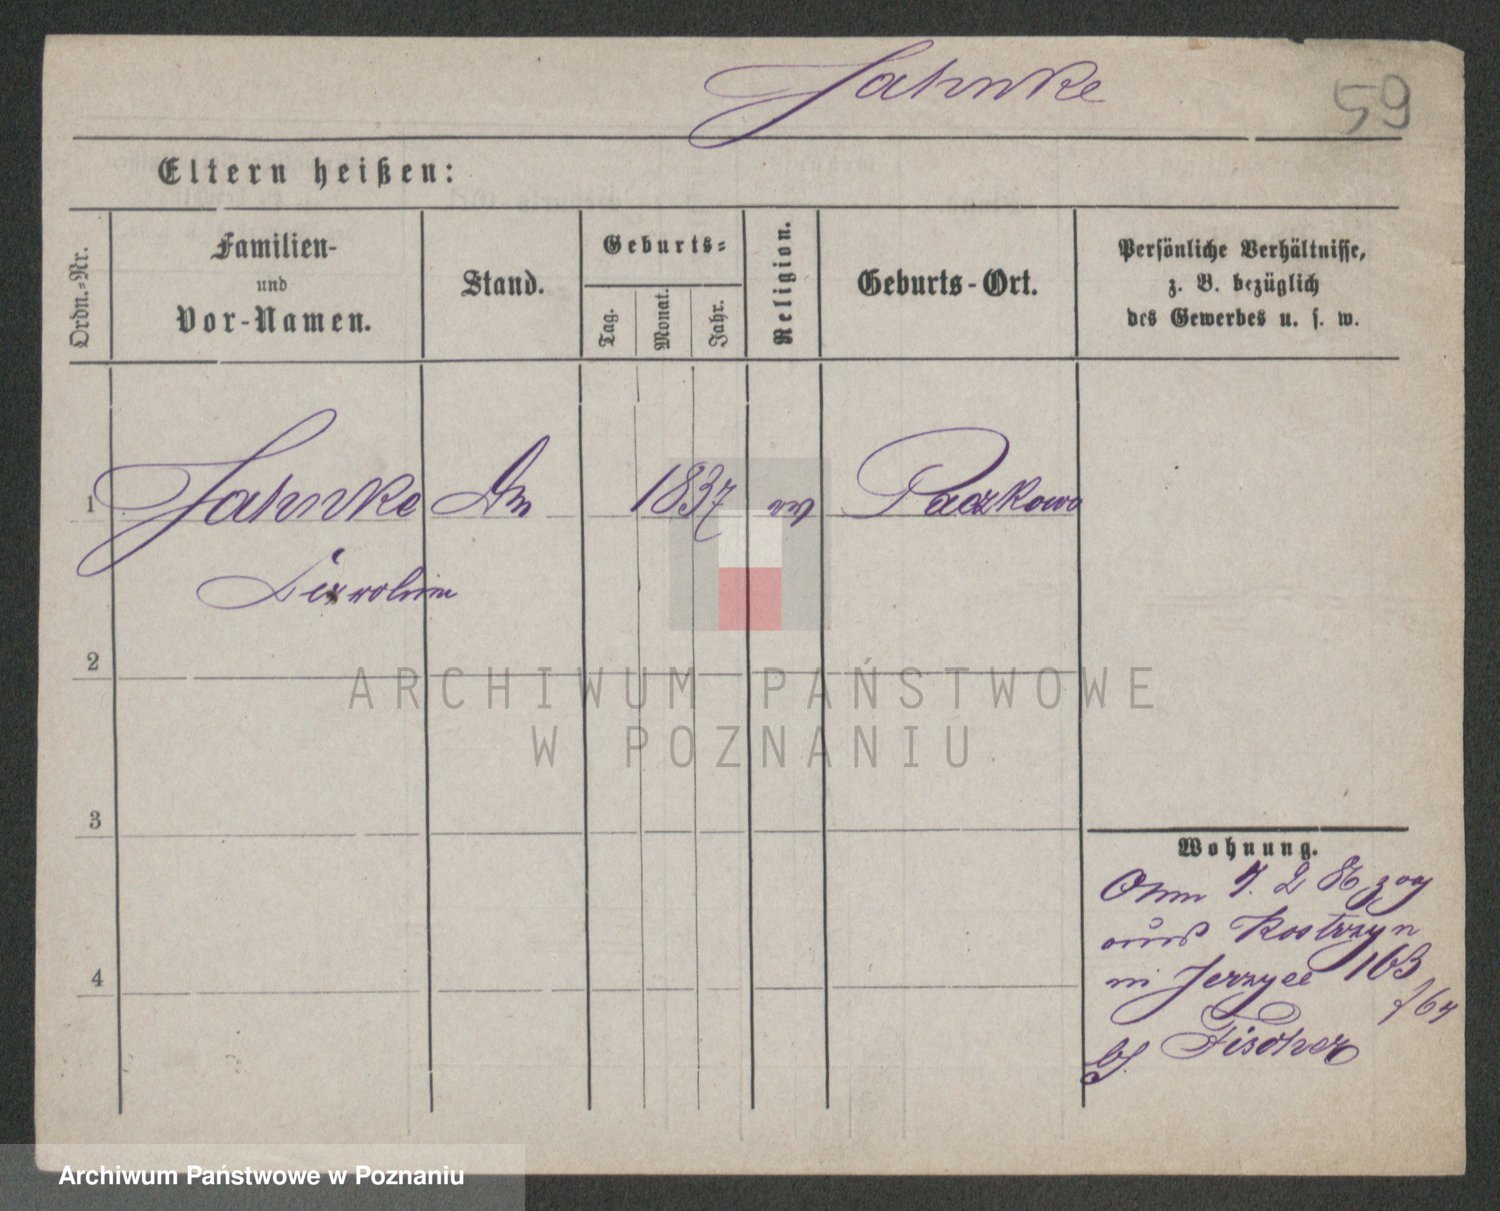 Jahnke
59
Eltern heißen:
Ordn.-Nr.
Familien-
und
Vor-Namen.
Stand.
Geburts-
Tag.
Monat.
Jahr.
Religion.
Geburts-Ort.
Persönliche Verhältnisse,
z. B. bezüglich
des Gewerbes u. s. w.
1 Jahnke 1837 ev Paczkowo
2
ARCHIWUM PAŃSTWOWE
W POZNANIU
3
4
Wohnung.
7. 2 zog
aus Kostrzyn
in Jerzyce 163
/64
Fischer
Archiwum Państwowe w Poznaniu